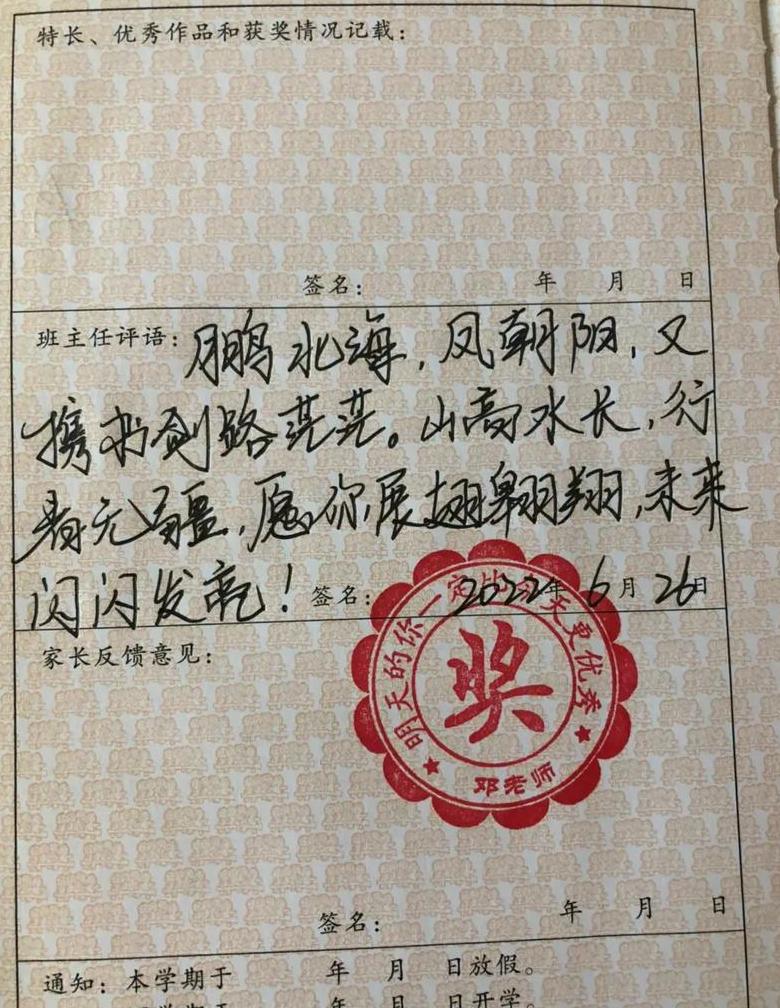 特长、优秀作品和获奖情况记载：
签名： 年 月 日
班主任评语：鹏北海，凤朝阳，又
携书剑路茫茫。山高水长，行
者无疆，愿你展翅翱翔，未来
闪闪发亮！ 签名： 2022年 6月 26日
明天的你一定比今天更优秀
奖
邓老师
家长反馈意见：
签名： 年 月 日
通知：本学期于 年 月 日放假。
年 月 日开学。